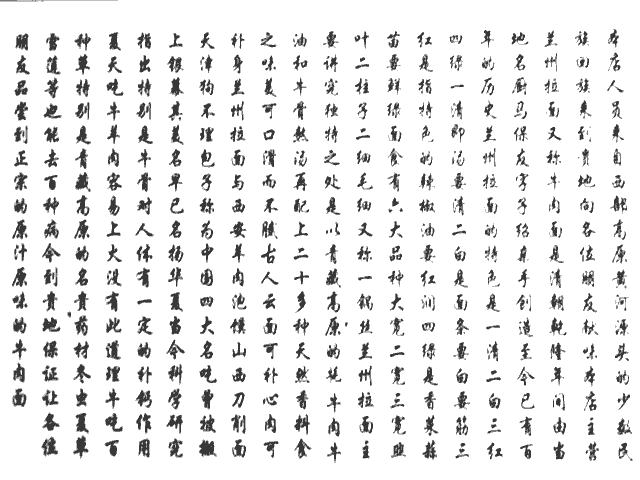 本店人员来自西部高原黄河源头的少数民
族回族来到贵地向各位朋友献味本店主营
兰州拉面又称牛肉面是清朝乾隆年间由当
地名厨马保友字子经真手创造至今已有百
年的历史兰州拉面的特色是一清二白三红
四绿一清即汤要清二白是面条要白要筋三
红是指特色的辣椒油要红润四绿是香菜蒜
苗要鲜绿面食有六大品种大宽二宽三宽韭
叶二柱子二细毛细又称一锅丝兰州拉面主
要讲究独特之处是以青藏高原的牦牛肉牛
油和牛骨熬汤再配上二十多种天然香料食
之味美可口滑而不腻古人云面可补心肉可
补身兰州拉面与西安羊肉泡馍山西刀削面
天津狗不理包子称为中国四大名吃曾被搬
上银幕其美名早已名扬华夏当今科学研究
指出特别是牛骨对人体有一定的补钙作用
夏天吃牛羊肉容易上火没有此道理牛吃百
种草特别是青藏高原的名贵药材冬虫夏草
雪莲等也能去百种病今到贵地保证让各位
朋友品尝到正宗的原汁原味的牛肉面